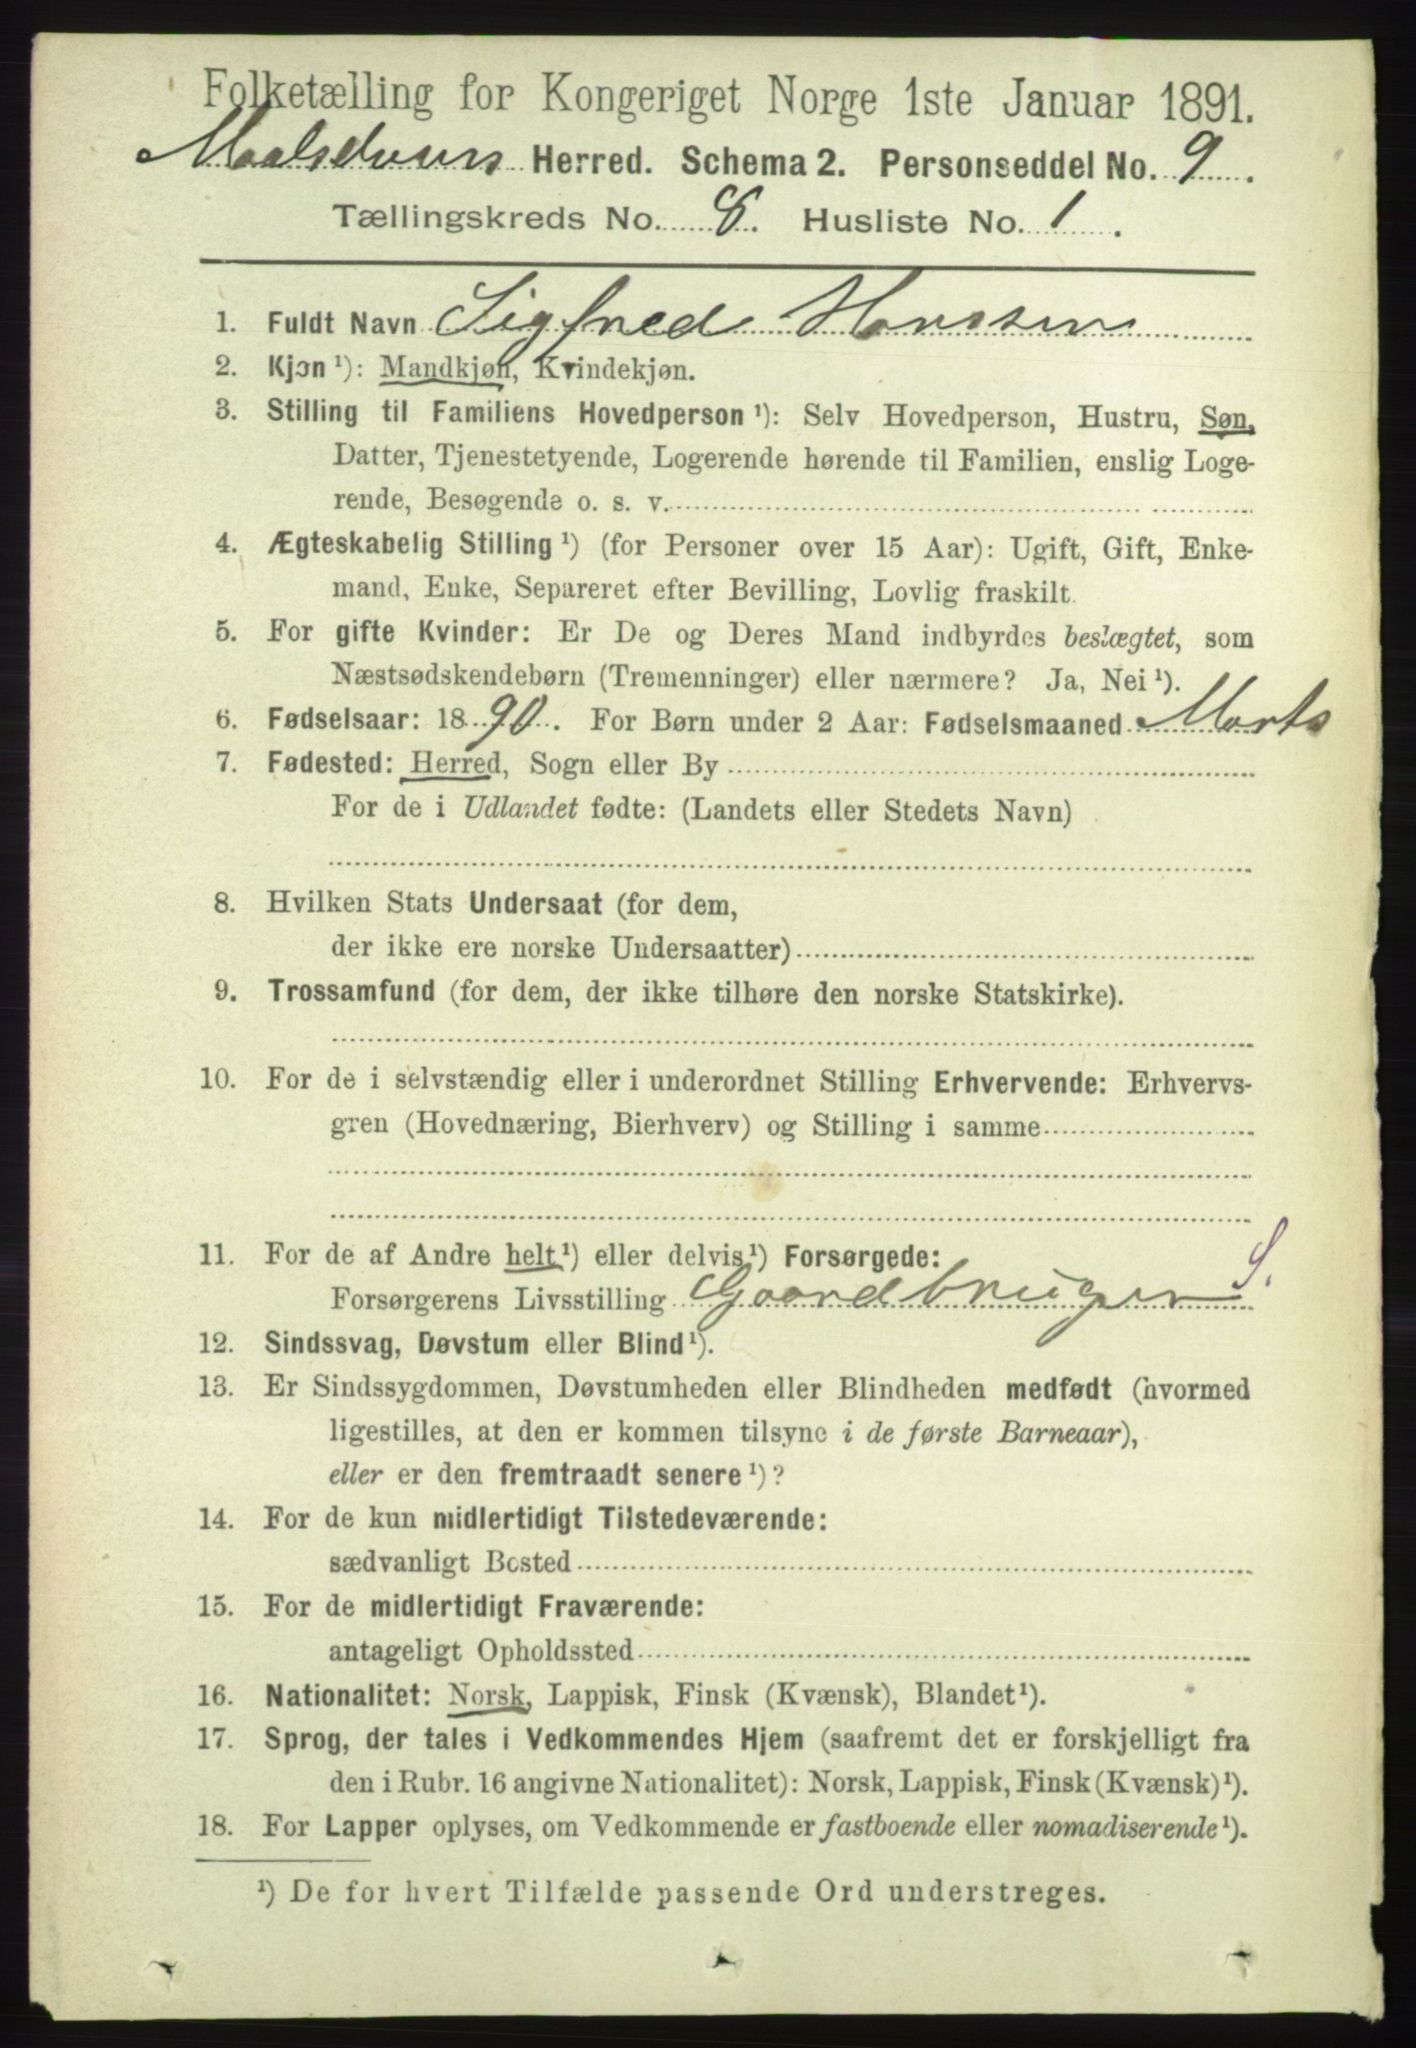 Folketælling for Kongeriget Norge 1ste Januar 1891.
Maalselvens Herred. Schema 2. Personseddel No. 9.
Tællingskreds No. 8. Husliste No. 1.
1. Fuldt Navn Sigfred Hanssen
2. Kjøn ¹): Mandkjøn, Kvindekjøn.
3. Stilling til Familiens Hovedperson ¹): Selv Hovedperson, Hustru, Søn,
Datter, Tjenestetyende, Logerende hørende til Familien, enslig Loge-
rende, Besøgende o. s. v.
4. Ægteskabelig Stilling ¹) (for Personer over 15 Aar): Ugift, Gift, Enke-
mand, Enke, Separeret efter Bevilling, Lovlig fraskilt.
5. For gifte Kvinder: Er De og Deres Mand indbyrdes beslægtet, som
Næstsødskendebørn (Tremenninger) eller nærmere? Ja, Nei ¹).
6. Fødselsaar: 1890. For Børn under 2 Aar: Fødselsmaaned Marts
7. Fødested: Herred, Sogn eller By
For de i Udlandet fødte: (Landets eller Stedets Navn)
8. Hvilken Stats Undersaat (for dem,
der ikke ere norske Undersaatter)
9. Trossamfund (for dem, der ikke tilhøre den norske Statskirke).
10. For de i selvstændig eller i underordnet Stilling Erhvervende: Erhvervs-
gren (Hovednæring, Bierhverv) og Stilling i samme
11. For de af Andre helt ¹) eller delvis ¹) Forsørgede:
Forsørgerens Livsstilling Gaardbruger S.
12. Sindssvag, Døvstum eller Blind ¹).
13. Er Sindssygdommen, Døvstumheden eller Blindheden medfødt (hvormed
ligestilles, at den er kommen tilsyne i de første Barneaar),
eller er den fremtraadt senere ¹)?
14. For de kun midlertidigt Tilstedeværende:
sædvanligt Bosted
15. For de midlertidigt Fraværende:
antageligt Opholdssted
16. Nationalitet: Norsk, Lappisk, Finsk (Kvænsk), Blandet ¹).
17. Sprog, der tales i Vedkommendes Hjem (saafremt det er forskjelligt fra
den i Rubr. 16 angivne Nationalitet): Norsk, Lappisk, Finsk (Kvænsk) ¹).
18. For Lapper oplyses, om Vedkommende er fastboende eller nomadiserende ¹).
¹) De for hvert Tilfælde passende Ord understreges.